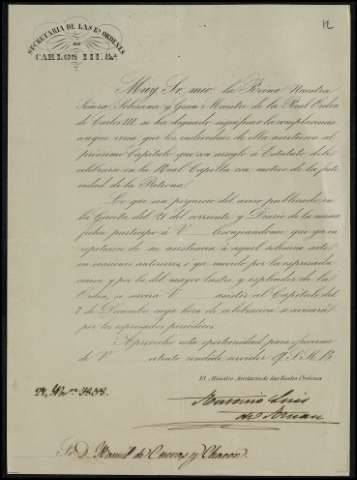 12
SECRETARIA DE LAS Rs. ORDENES
DE
CARLOS III, &a.
Muy Sr. mio: la Reina Nuestra
Señora Soberana y Gran Maestre de la Real Orden
de Carlos III. se ha dignado significar la complacencia
conque veria que los individuos de ella asistieran al
próximo Capítulo que con arreglo a Estatuto debe
celebrarse en la Real Capilla con motivo de la fes-
tividad de la Patrona.
Lo que sin perjuicio del aviso publicado en
la Gaceta del 21 del corriente y Diario de la misma
fecha participo á V
repeticion de su asistencia á aquel solemne acto
en ocasiones anteriores, o que movido por la espresada
causa y por la del mayor lustre y esplendor de la
Orden, se servirá V asistir al Capítulo del
7 de Diciembre cuya hora de celebracion se avisará
por los espresados periódicos.
Aprovecho esta oportunidad para ofrecerme
de V atento rendido servidor Q. S. M. B.
El Ministro Secretario de las Reales Ordenes
Antonio Luis
de Arnau
Sr. D. Manuel de Cuevas y Chacon